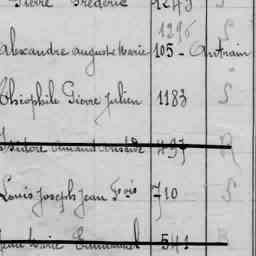 Pierre Frédéric 1243 S
1296 S
Alexandre auguste Marie 105 - Antrain
Théophile Pierre Julien 1183 S
Isidore Armand Anselme 497 R
Louis Joseph Jean Fçois 710 S
Jean Marie Emmanuel 541 R